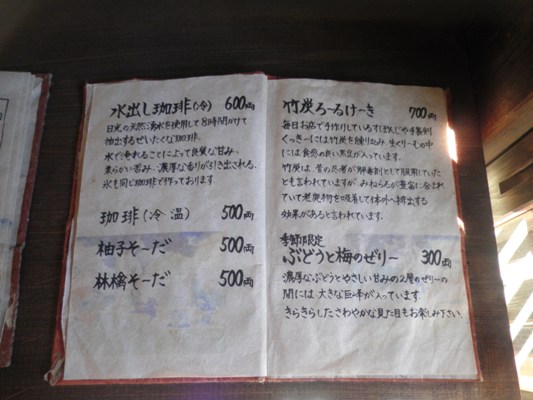 水出し珈琲(冷) 600円
日光の天然湧水を使用して8時間かけて
抽出するぜいたくな珈琲。
水で淹れることによって良質な甘み、
柔らかい苦み、濃厚な香りが引き出される。
氷も同じ珈琲で作っております。
珈琲(冷 温) 500円
柚子そ〜だ 500円
林檎そ〜だ 500円
竹炭ろ〜るけ〜き 700円
毎日お店で手作りしているすぽんじや手製刷
くっきーには竹炭を練り込み、生くりーむの中
には食感の良い黒豆が入っています。
竹炭は、昔の忍者が解毒剤として服用していた
とも言われていますが、みねらるが豊富に含まれ
ていて老廃物を吸着して体外へ排出する
効果があると言われています。
季節限定
ぶどうと梅のぜりー 300円
濃厚なぶどうとやさしい甘みの2層のぜりーの
間には大きな巨峰が入っています。
きらきらしたさわやかな見た目もお楽しみ下さい。